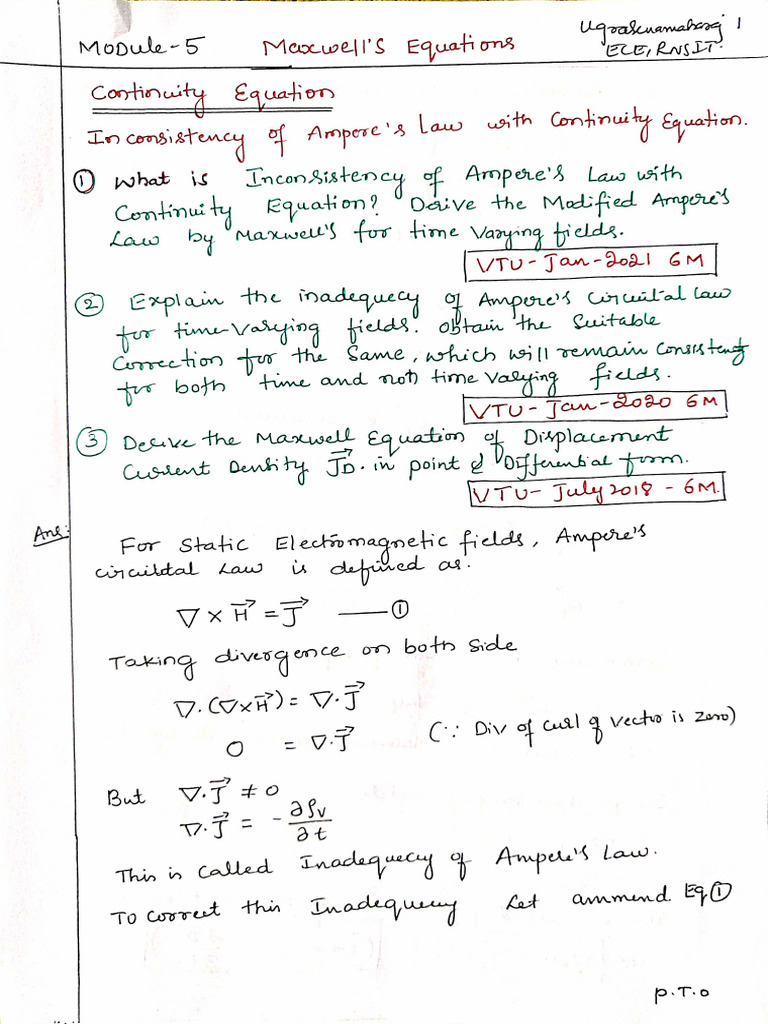 Module-5 Maxwell's Equations 1
ECE, RNSIT.
Continuity Equation
Inconsistency of Ampere's Law with Continuity Equation.
① What is Inconsistency of Ampere's Law with
Continuity Equation? Derive the Modified Ampere's
Law by Maxwell's for time Varying fields.
VTU-Jan-2021 6M
② Explain the inadequecy of Ampere's Circuital Law
for time-Varying fields. Obtain the Suitable
Correction for the Same, which will remain Consistent
for both time and not time Varying fields.
VTU-Jan-2020 6M
③ Derive the Maxwell Equation of Displacement
Current Density J⃗D. in point & Differential form.
VTU- July 2018 - 6M
Ans:
For Static Electromagnetic fields, Ampere's
circuital Law is defined as.
∇ × H⃗ = J⃗ —— ①
Taking divergence on both side
∇.(∇×H⃗) = ∇.J⃗
0 = ∇.J⃗ (∵ Div of curl of vector is zero)
But ∇.J⃗ ≠ 0
∇.J⃗ = - ∂ρv/∂t
This is called Inadequecy of Ampere's Law.
To correct this Inadequecy Let ammend Eq ①
P.T.O